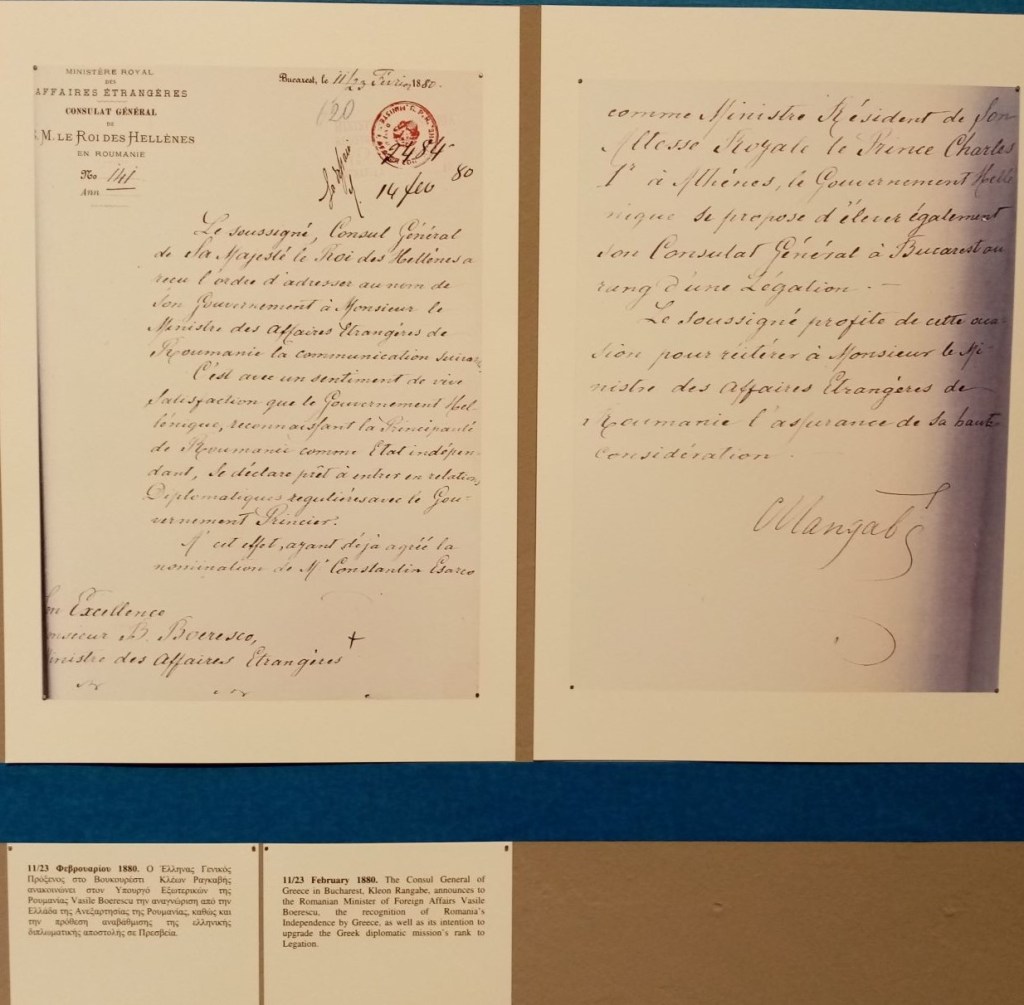 MINISTÈRE ROYAL
DES
AFFAIRES ÉTRANGÈRES
CONSULAT GÉNÉRAL
DE
S. M. LE ROI DES HELLÈNES
EN ROUMANIE
No 141
Ann
Bucarest, le 11/23 Février 1880.
120
2484
14 feb 80
Le soussigné, Consul Général
de Sa Majesté le Roi des Hellènes a
reçu l'ordre d'adresser au nom de
son Gouvernement à Monsieur le
Ministre des Affaires Etrangères de
Roumanie la communication suivante
C'est avec un sentiment de vive
satisfaction que le Gouvernement Hel-
lénique, reconnaissant la Principauté
de Roumanie comme Etat indépen-
dant, se déclare prêt à entrer en relations
Diplomatiques regulières avec le Gou-
vernement Princier.
A cet effet, ayant déjà agréé la
nomination de Mr Constantin Esarco
Son Excellence
Monsieur B. Boeresco,
Ministre des Affaires Etrangères
comme Ministre Résident de Son
Altesse Royale le Prince Charles
1r à Athènes, le Gouvernement Hellé
nique se propose d'élever également
son Consulat Général à Bucarest au
rang d'une Légation. —
Le soussigné profite de cette occa-
sion pour réitérer à Monsieur le Mi-
nistre des Affaires Etrangères de
Roumanie l'assurance de sa haute
considération
11/23 Φεβρουαρίου 1880. Ο Έλληνας Γενικός
Πρόξενος στο Βουκουρέστι Κλέων Ραγκαβής
ανακοινώνει στον Υπουργό Εξωτερικών της
Ρουμανίας Vasile Boerescu την αναγνώριση από την
Ελλάδα της Ανεξαρτησίας της Ρουμανίας, καθώς και
την πρόθεση αναβάθμισης της ελληνικής
διπλωματικής αποστολής σε Πρεσβεία.
11/23 February 1880. The Consul General of
Greece in Bucharest, Kleon Rangabe, announces to
the Romanian Minister of Foreign Affairs Vasile
Boerescu, the recognition of Romania's
Independence by Greece, as well as its intention to
upgrade the Greek diplomatic mission's rank to
Legation.